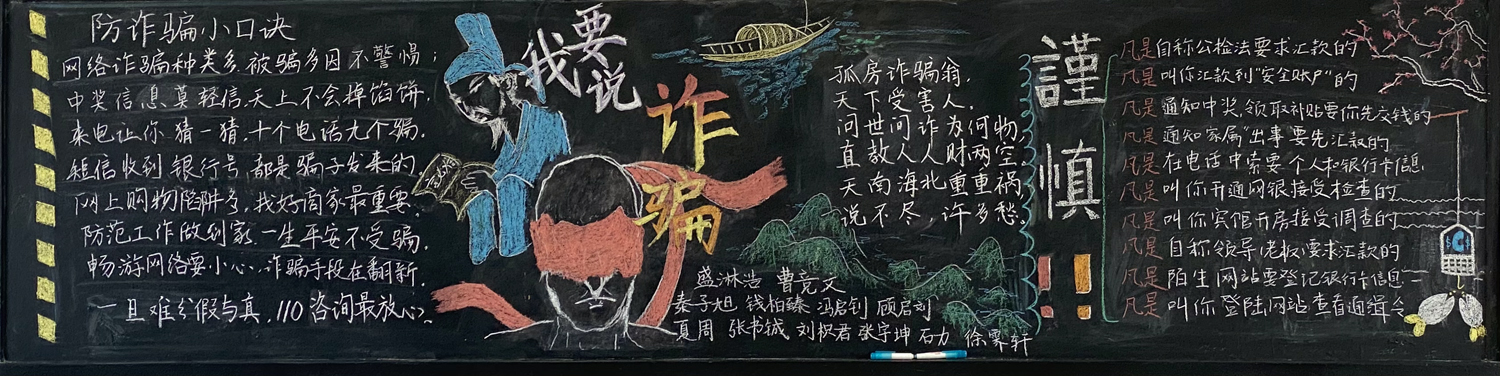 防诈骗小口诀
网络诈骗种类多,被骗多因不警惕;
中奖信息莫轻信,天上不会掉馅饼.
来电让你猜一猜,十个电话九个骗.
短信收到银行号,都是骗子发来的.
网上购物陷阱多,找好商家最重要.
防范工作做到家,一生平安不受骗.
畅游网络要小心,诈骗手段在翻新.
一旦难分假与真,110咨询最放心.
我要说
诈骗
孤房诈骗翁,
天下受害人,
问世间诈为何物,
直教人人财两空,
天南海北重重祸,
说不尽,许多愁.
盛淋浩 曹竞文
秦子旭 钱柏臻 冯启钊 顾启刘
夏周 张书铖 刘枳君 张宇坤 石力 徐霁轩
謹慎!!
凡是自称公检法要求汇款的
凡是叫你汇款到"安全账户"的
凡是通知中奖,领取补贴要你先交钱的
凡是通知家属"出事"要先汇款的
凡是在电话中索要个人和银行卡信息
凡是叫你开通网银接受检查的
凡是叫你宾馆开房接受调查的
凡是自称领导(老板)要求汇款的
凡是陌生网站要登记银行卡信息
凡是叫你登陆网站查看通缉令